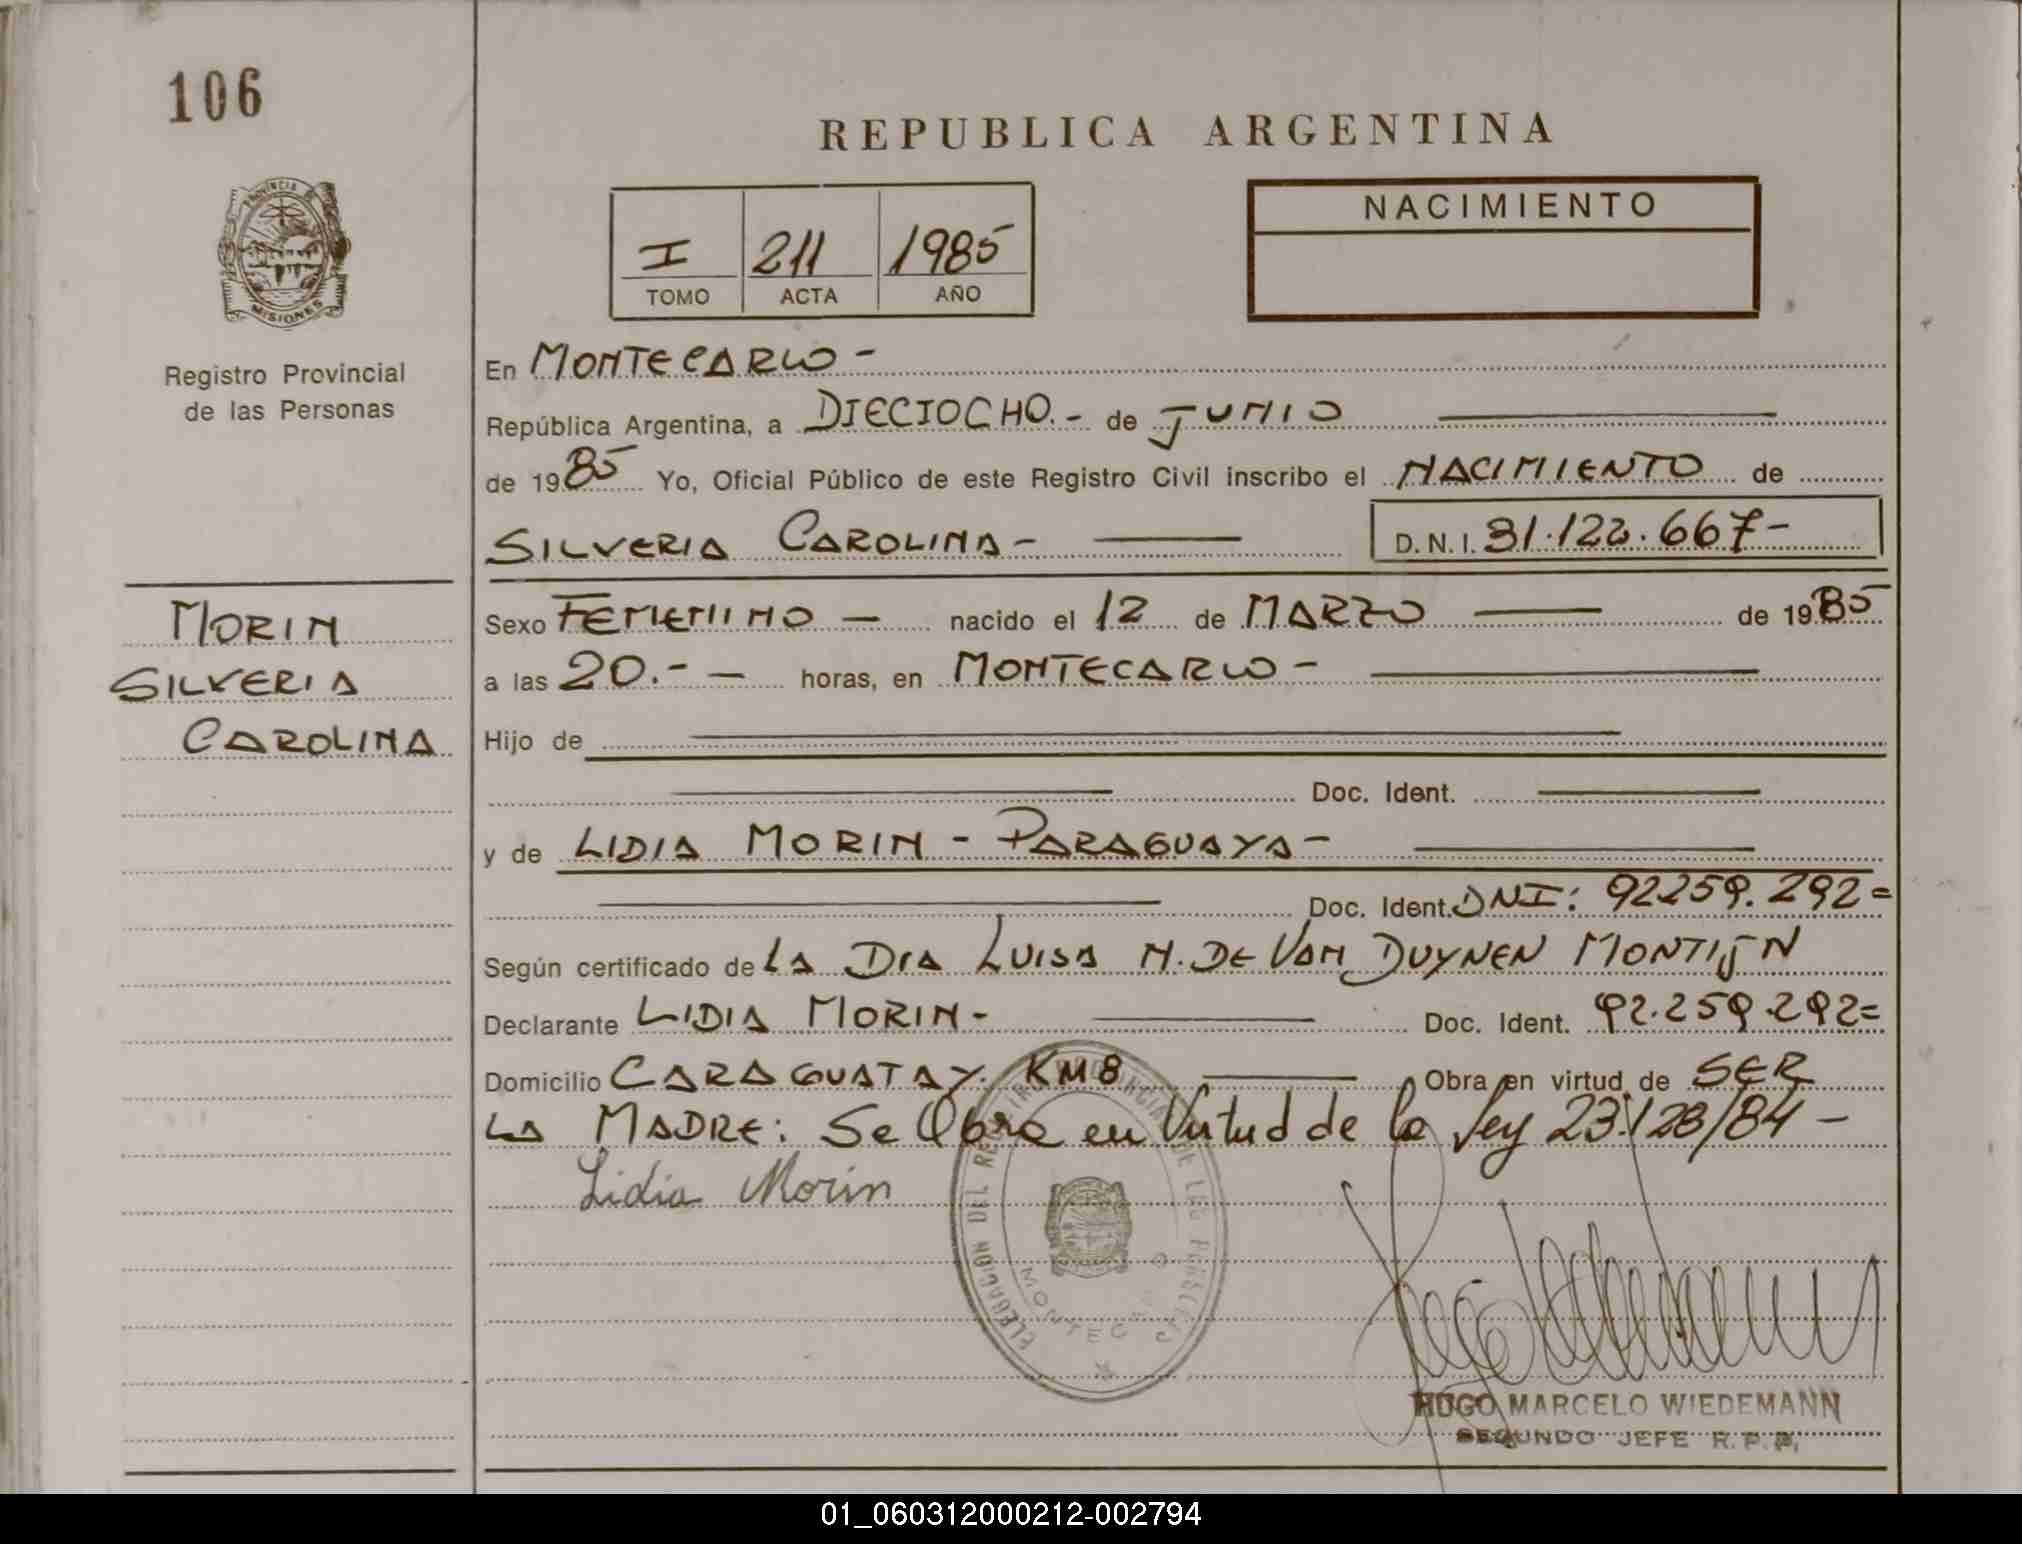 106
REPUBLICA ARGENTINA
PROVINCIA DE
MISIONES
Registro Provincial
de las Personas
I 211 1985
TOMO ACTA AÑO
NACIMIENTO
En MONTECARLO -
República Argentina, a DIECIOCHO.- de JUNIO
de 1985 Yo, Oficial Público de este Registro Civil inscribo el NACIMIENTO de
SILVERIA CAROLINA - D.N.I. 31.122.667-
MORIN
SILVERIA
CAROLINA
Sexo FEMENINO — nacido el 12 de MARZO de 1985
a las 20.- — horas, en MONTECARLO -
Hijo de
Doc. Ident.
y de LIDIA MORIN - PARAGUAYA -
Doc. Ident. DNI: 92259.292=
Según certificado de LA DRA LUISA M. DE VAN DUYNEN MONTIJN
Declarante LIDIA MORIN - Doc. Ident. 92.259.292=
Domicilio CARAGUATAY. KM8 Obra en virtud de SER
LA MADRE: Se Obra en Virtud de la Ley 23.128/84 -
Lidia Morin
DELEGACION DEL REGISTRO PROVINCIAL DE LAS PERSONAS
MONTECARLO
HUGO MARCELO WIEDEMANN
SEGUNDO JEFE R.P.P.
01_060312000212-002794